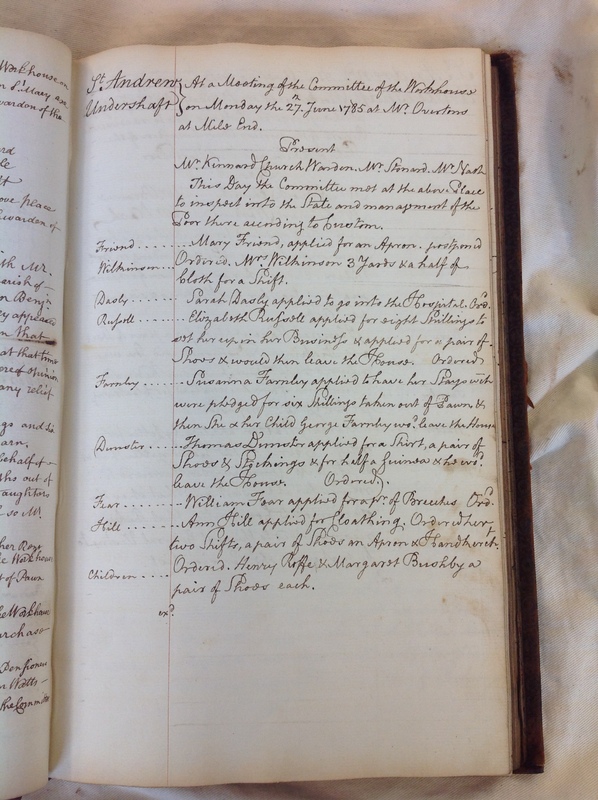 Workhouse on
n St. Mary axe
warden of the
ove place
warden of
th Mr.
rish of
on Benjn
ly appeared
n that
at that time
ere of opinion
any relief.
behalf of
tho out of
aughters
so Mr.
her Roze
e Workhouse
t of Pawn
he Workhouse
urchase
Pensioners
Watts
the Committee
St. Andrew Undershaft } At a Meeting of the Committee of the Workhouse
on Monday the 27th. June 1785 at Mr. Overtons
at Mile End.
Present
Mr. Kinnard Church Warden. Mr. Stonard. Mr. Nash
This Day the Committee met at the above Place
to inspect into the State and management of the
Poor there according to Custom.
Friend . . . . . . . Mary Friend, applied for an Apron. postponed
Wilkinson . . . Ordered. Mrs. Wilkinson 3 Yards & a half of
Cloth for a Shift.
Dasly . . . . . . . Sarah Dasly applied to go into the Hospital. Ord.
Russell . . . . . . Elizabeth Russell applied for eight Shillings to
set her up in her Business & applied for a pair of
Shoes & would then leave the House. Ordered
Farnley . . . . . Susanna Farnley applied to have her Stays wch
were pledged for six Shillings taken out of Pawn, &
then She & her Child George Farnley wod. leave the House
Dunster . . . . . Thomas Dunster applied for a Shirt, a pair of
Shoes & Stockings & for half a Guinea & he wd.
leave the House. Ordered.
Fear . . . . . . . . William Fear applied for a pr. of Breeches Ord.
Hill . . . . . . . . Ann Hill applied for Cloathing; Ordered her
two Shifts, a pair of Shoes an Apron & Handkercht.
Children . . . . Ordered. Henry Roffe & Margaret Bushby a
pair of Shoes each.
exd.